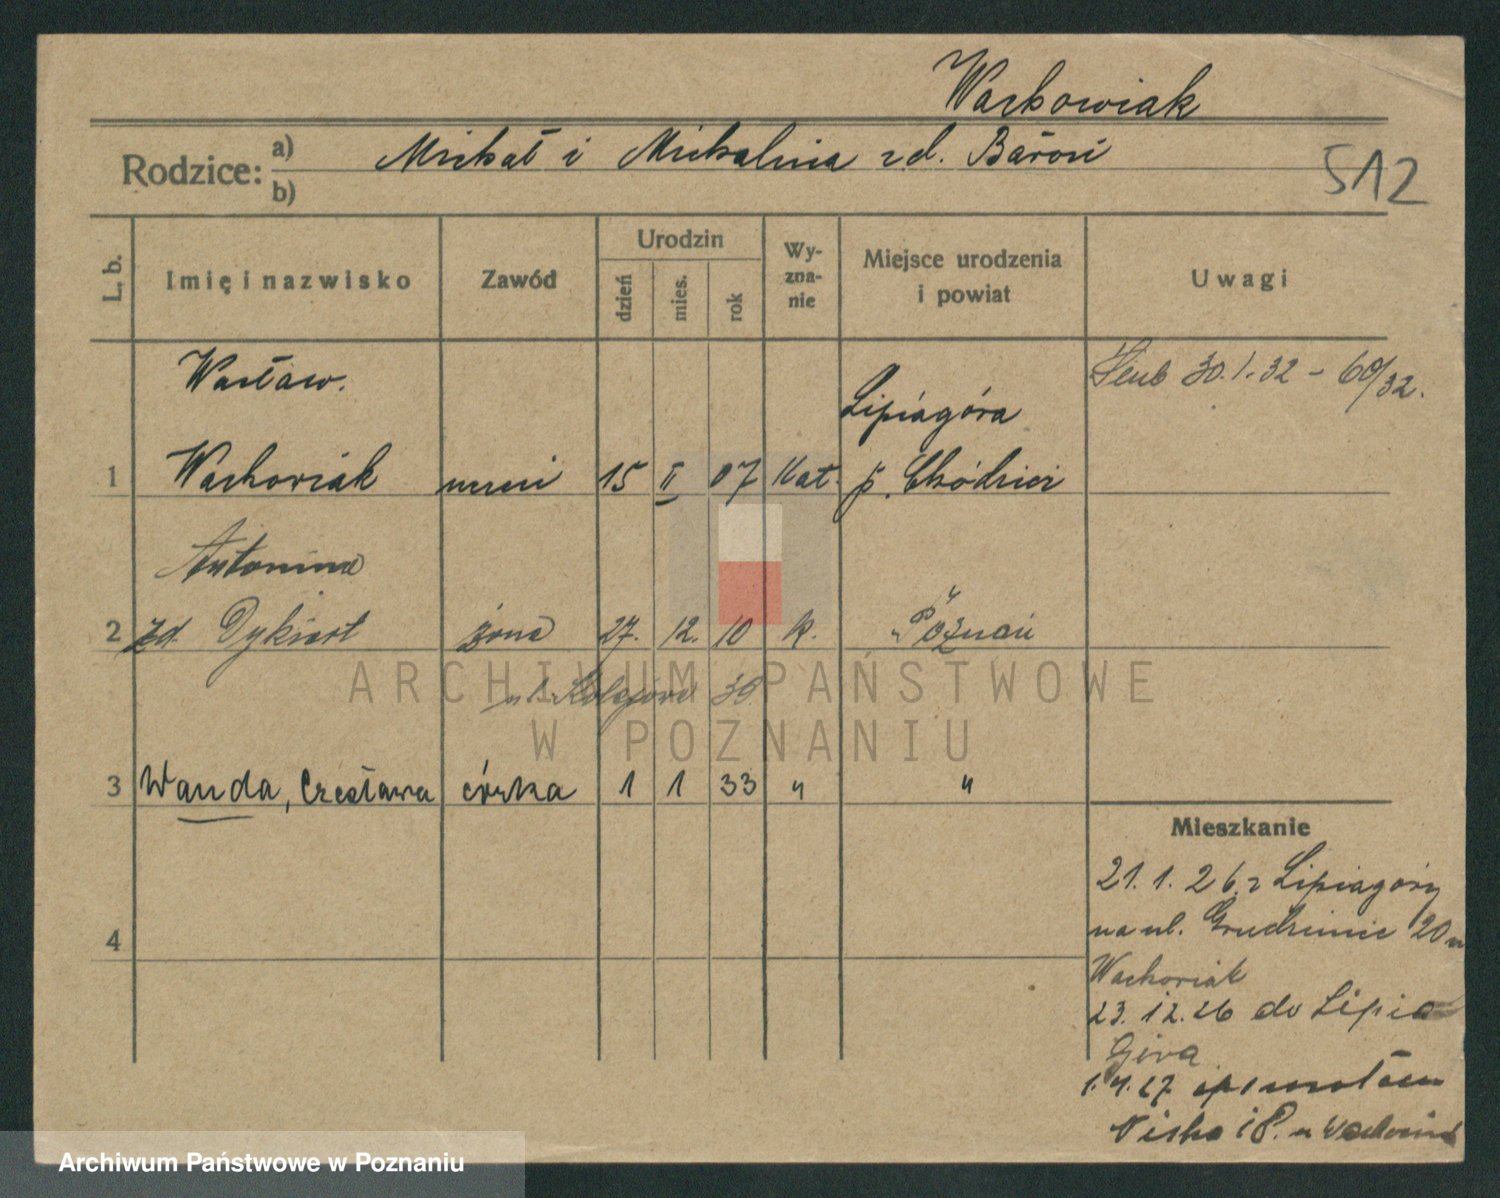 Wachowiak
Rodzice: a) Michał i Michalina zd. Baroń
b)
512
L. b.
Imię i nazwisko
Zawód
Urodzin
dzień
mies.
rok
Wy-
zna-
nie
Miejsce urodzenia
i powiat
Uwagi
Wacław.
Wachowiak
1
uczeń 15 II 07 Kat.
Lipiagóra
p. Chodzież
Ślub 30.1.32 - 60/32.
Antonina
2 zd. Dykiert żona 27. 12. 10 k. " Poznań
ul. Kolejowa 30
3 Wanda, Czesława córka 1 1 33 " "
4
Mieszkanie
21. 1. 26 z Lipiagóry
na ul. Grudzieniec 20 u
Wachowiak
23. 12. 26 do Lipia
Góra
1. 4. 27 z powrotem
Niska 18. u Wachowiak
ARCHIWUM PAŃSTWOWE
W POZNANIU
Archiwum Państwowe w Poznaniu